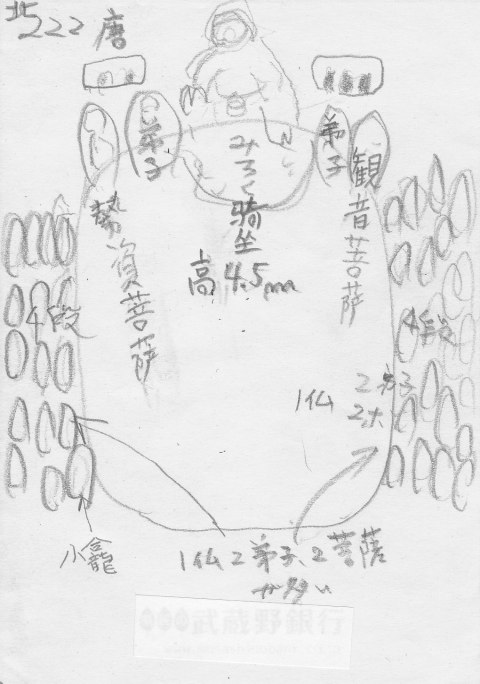 北
222 唐
弟子
弟子
みろく騎坐
高4.5m
観音菩薩
勢資菩薩
4段
4段
1仏 2弟子
2ボ
小龕
1仏2弟子、2菩薩
が多い
武蔵野銀行